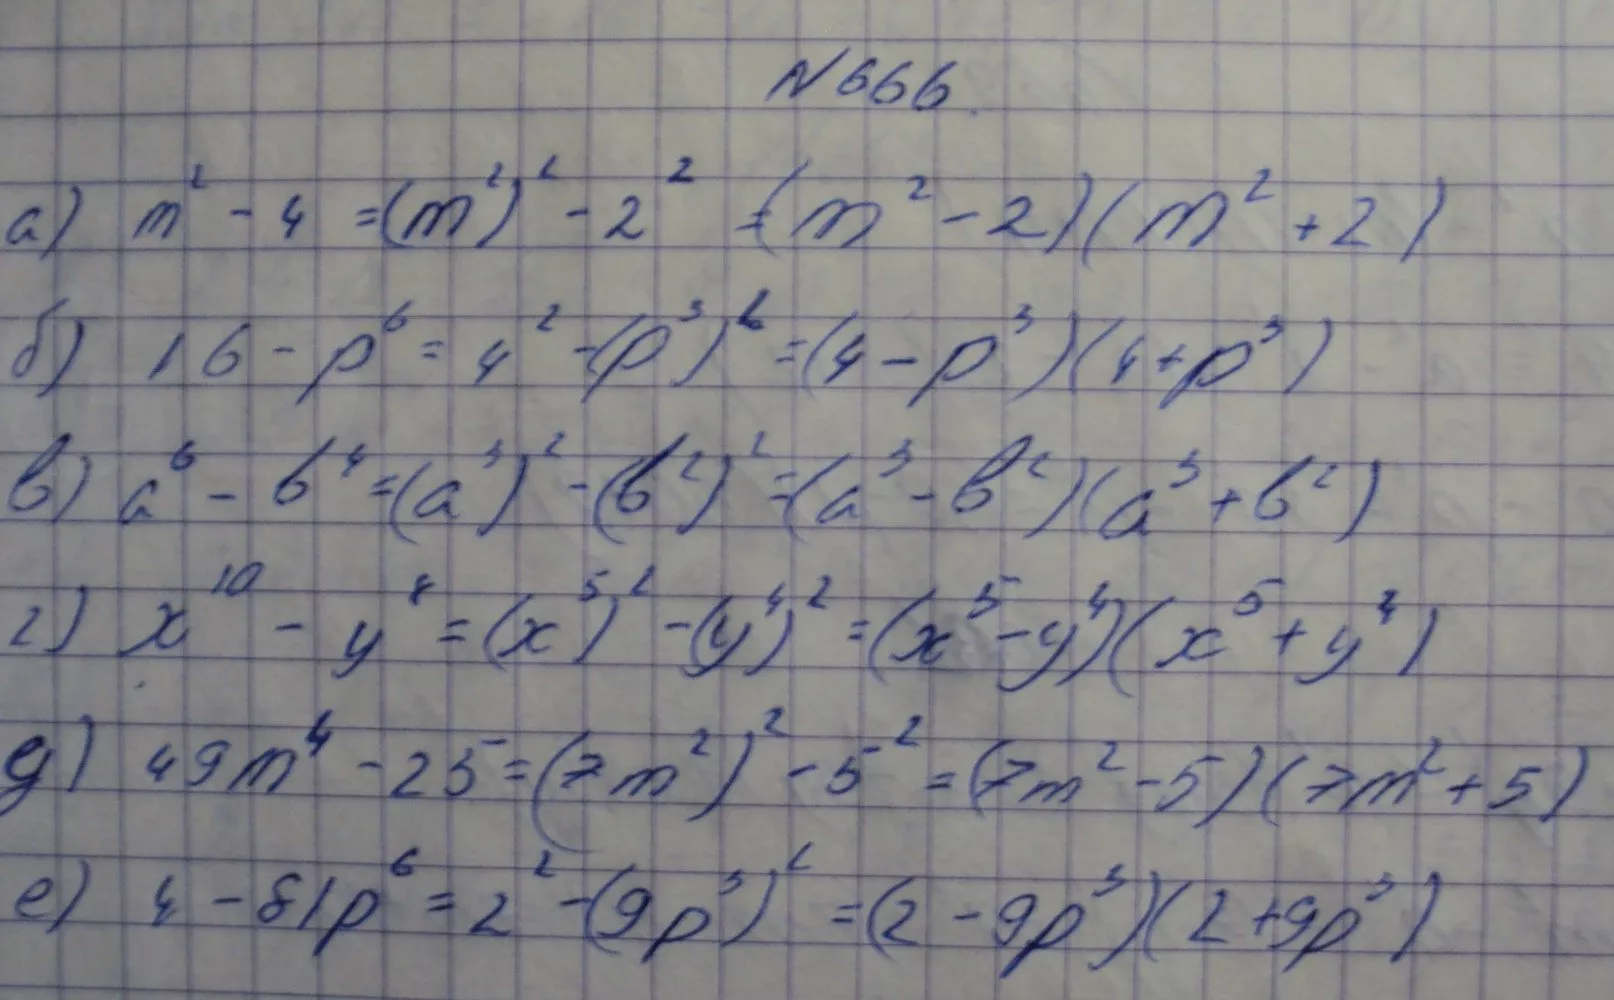 N 666.
а) m² - 4 = (m²)² - 2² = (m² - 2)(m² + 2)
б) 16 - p⁶ = 4² - (p³)² = (4 - p³)(4 + p³)
в) a⁶ - b⁴ = (a³)² - (b²)² = (a³ - b²)(a³ + b²)
г) x¹⁰ - y⁸ = (x⁵)² - (y⁴)² = (x⁵ - y⁴)(x⁵ + y⁴)
д) 49m⁴ - 25 = (7m²)² - 5² = (7m² - 5)(7m² + 5)
е) 4 - 81p⁶ = 2² - (9p³)² = (2 - 9p³)(2 + 9p³)